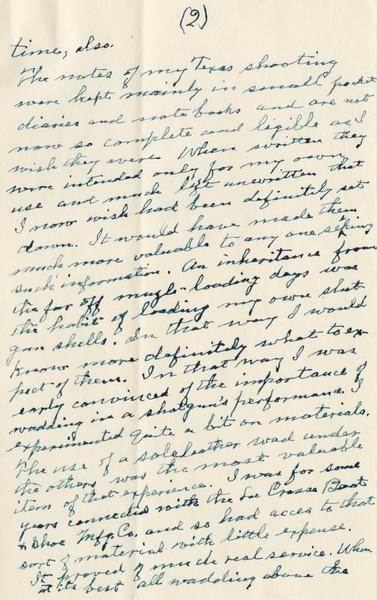 (2)
time, also.
The notes of my Texas shooting
were kept mainly in small pocket
diaries and note books and are not
now so complete and ligible as I
wish they were. When written they
were intended only for my own
use and much left unwritten that
I now wish had been definitely set
down. It would have made them
much more valuable to any one seking
such information. An inheritance from
the far off muzle-loading days was
the habit of loading my own shot
gun shells. In that way I would
know more definitely what to ex-
pect of them. In that way I was
early convinced of the importance of
wadding in a shotgun's performance. I
experimented quite a bit on materials.
The use of a soleleather wad under
the others was the most valuable
item of that experience. I was for some
years connected with the La Crosse Boot
& Shoe Mfg Co. and so had acces to that
sort of material with little expense.
It proved of much real service. When
at its best all wadding above the